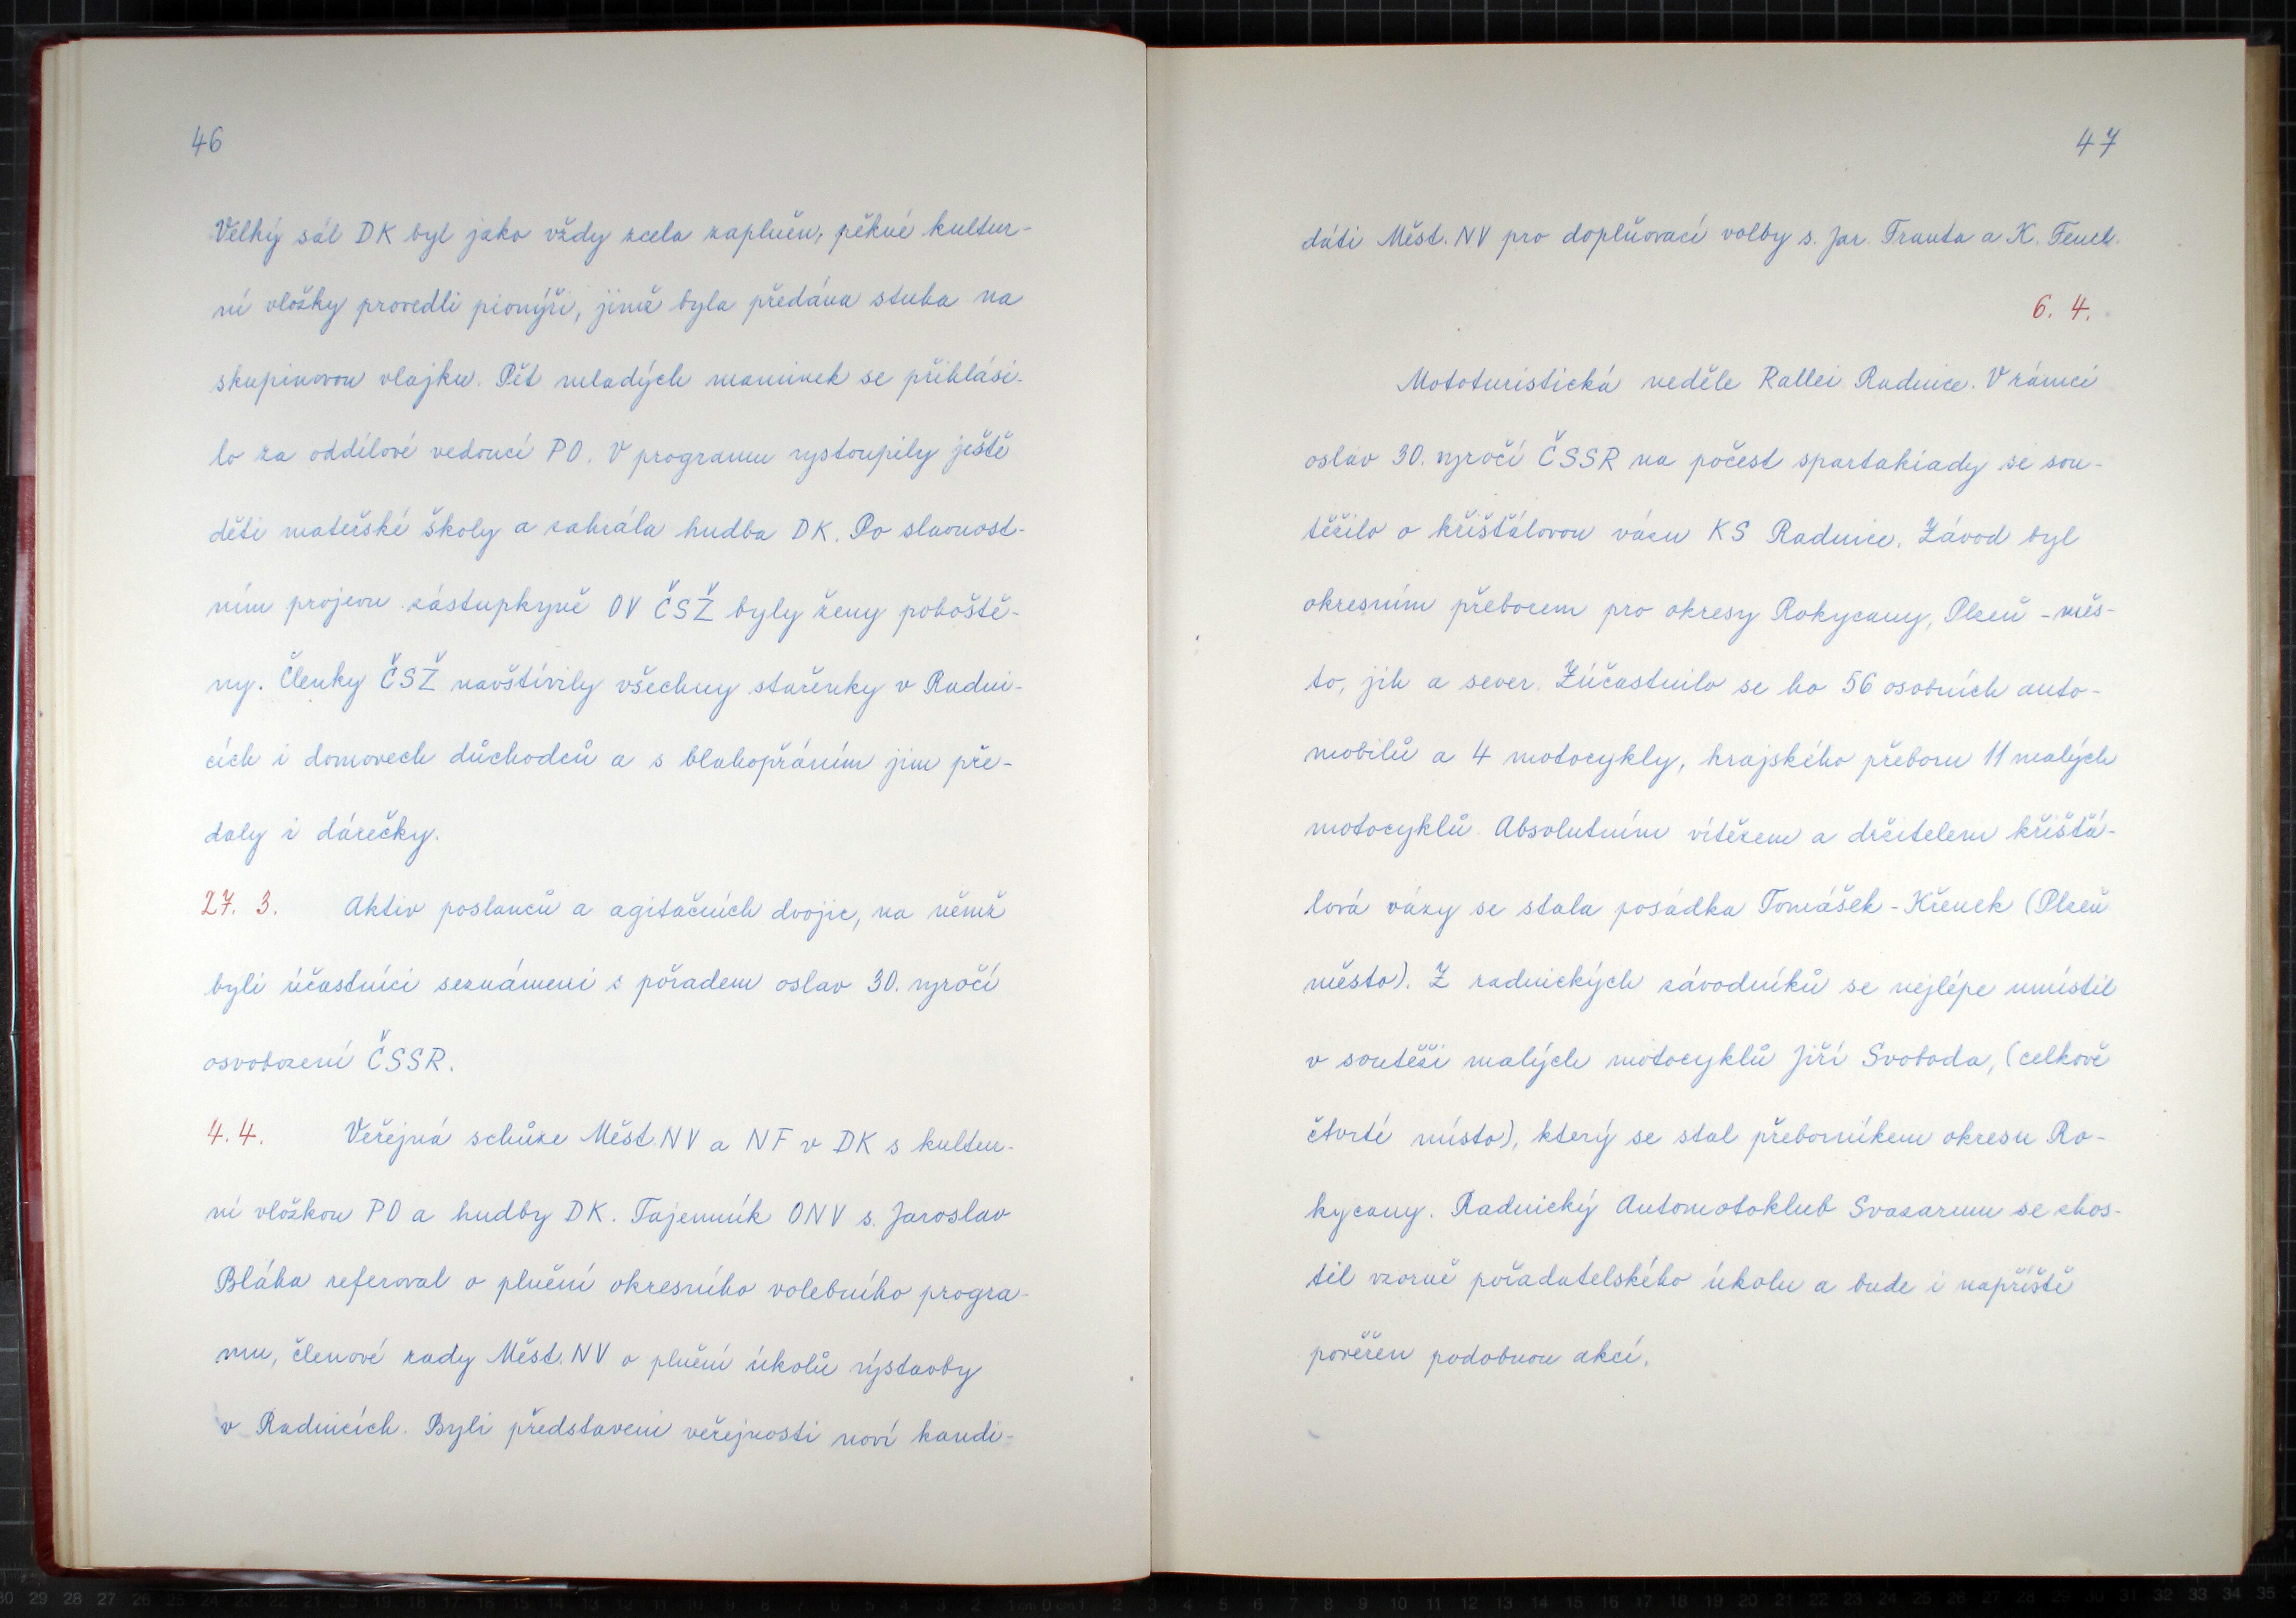 46
Velký sál DK byl jako vždy zcela zaplněn, pěkné kultur-
ní vložky provedli pionýři, jimž byla předána stuha na
skupinovou vlajku. Pět mladých maminek se přihlási-
lo za oddílové vedoucí PO. V programu vystoupily ještě
děti mateřské školy a zahrála hudba DK. Po slavnost-
ním projevu zástupkyně OV ČSŽ byly ženy pohoště-
ny. Členky ČSŽ navštívily všechny stařenky v Radni-
cích i domovech důchodců a s blahopřáním jim pře-
daly i dárečky.
27. 3. Aktiv poslanců a agitačních dvojic, na němž
byli účastníci seznámeni s pořadem oslav 30. výročí
osvobození ČSSR.
4. 4. Veřejná schůze Měst. NV a NF v DK s kultur-
ní vložkou PO a hudby DK. Tajemník ONV s. Jaroslav
Bláha referoval o plnění okresního volebního progra-
mu, členové rady Měst. NV o plnění úkolů výstavby
v Radnicích. Byli představeni veřejnosti noví kandi-
47
dáti Měst. NV pro doplňovací volby s. Jar. Trauta a K. Fencl.
6. 4.
Mototuristická neděle Rallei Radnice. V rámci
oslav 30. výročí ČSSR na počest spartakiady se sou-
těžilo o křišťálovou vázu KS Radnice. Závod byl
okresním přeborem pro okresy Rokycany, Plzeň - měs-
to, jih a sever. Zúčastnilo se ho 56 osobních auto-
mobilů a 4 motocykly, krajského přeboru 11 malých
motocyklů. Absolutním vítězem a držitelem křišťá-
lová vázy se stala posádka Tomášek - Křenek (Plzeň
město). Z radnických závodníků se nejlépe umístil
v soutěži malých motocyklů Jiří Svoboda, (celkově
čtvrté místo), který se stal přeborníkem okresu Ro-
kycany. Radnický Automotoklub Svazarmu se zhos-
til vzorně pořadatelského úkolu a bude i napříště
pověřen podobnou akcí.